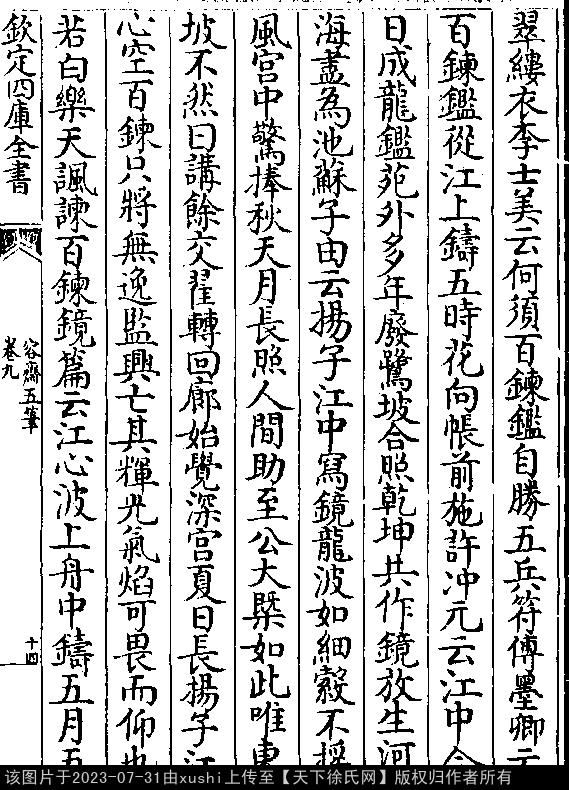 翠縷衣李士美云何須百鍊鑑自勝五兵符傅墨卿云
百鍊鑑從江上鑄五時花向帳前施許冲元云江中今
日成龍鑑苑外多年廢鷺坡合照乾坤共作鏡放生河
海盡為池蘇子由云揚子江中寫鏡龍波如細縠不揺
風宫中驚捧秋天月長照人間助至公大槩如此唯東
坡不然曰講餘交翟轉回廊始覺深宫夏日長揚子江
心空百鍊只將無逸監興亡其輝光氣焰可畏而仰也
若白樂天諷諫百鍊鏡篇云江心波上舟中鑄五月五
欽定四庫全書
容齋五筆
卷九
十四
该图片于2023-07-31由xushi上传至【天下徐氏网】版权归作者所有